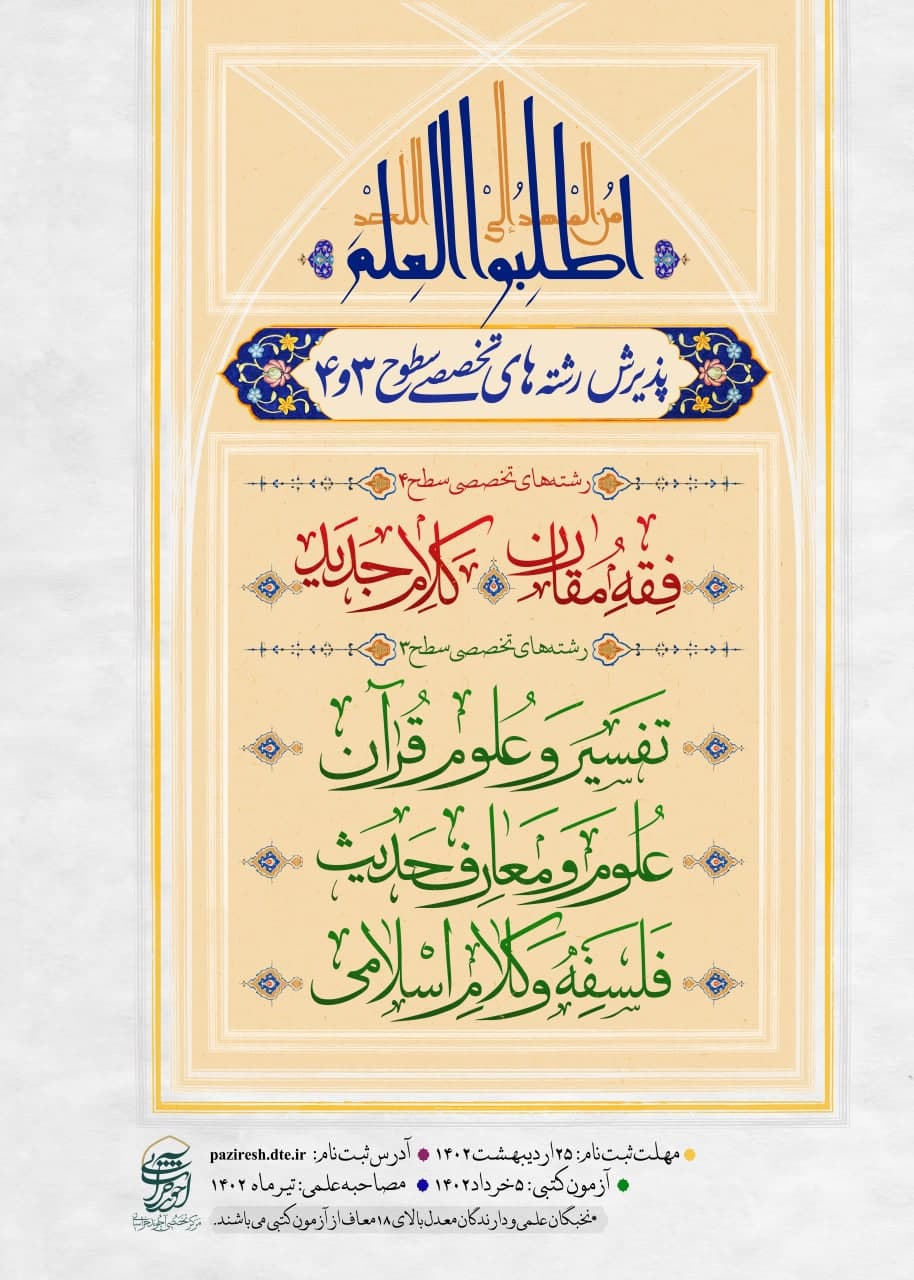 اطلبوا العلم
مِنَ المهد إلی اللحد
پذیرش رشته های تخصصی سطوح ۳ و ۴
رشته‌های تخصصی سطح ۴
فقهِ مُقارن کلامِ جدید
رشته‌های تخصصی سطح ۳
تفسیر و عُلوم قُرآن
عُلوم و مَعارِف حَدیث
فَلسَفِه و کَلامِ اسْلامی
مهلت ثبت نام: ۲۵ اردیبهشت ۱۴۰۲ آدرس ثبت نام: paziresh.dte.ir
آزمون کتبی: ۵ خرداد ۱۴۰۲ مصاحبه علمی: تیر ماه ۱۴۰۲
•نخبگان علمی و دارندگان معدل بالای ۱۸ معاف از آزمون کتبی می‌باشند.
آخوند خراسانی
مرکز تخصصی آخوند خراسانی